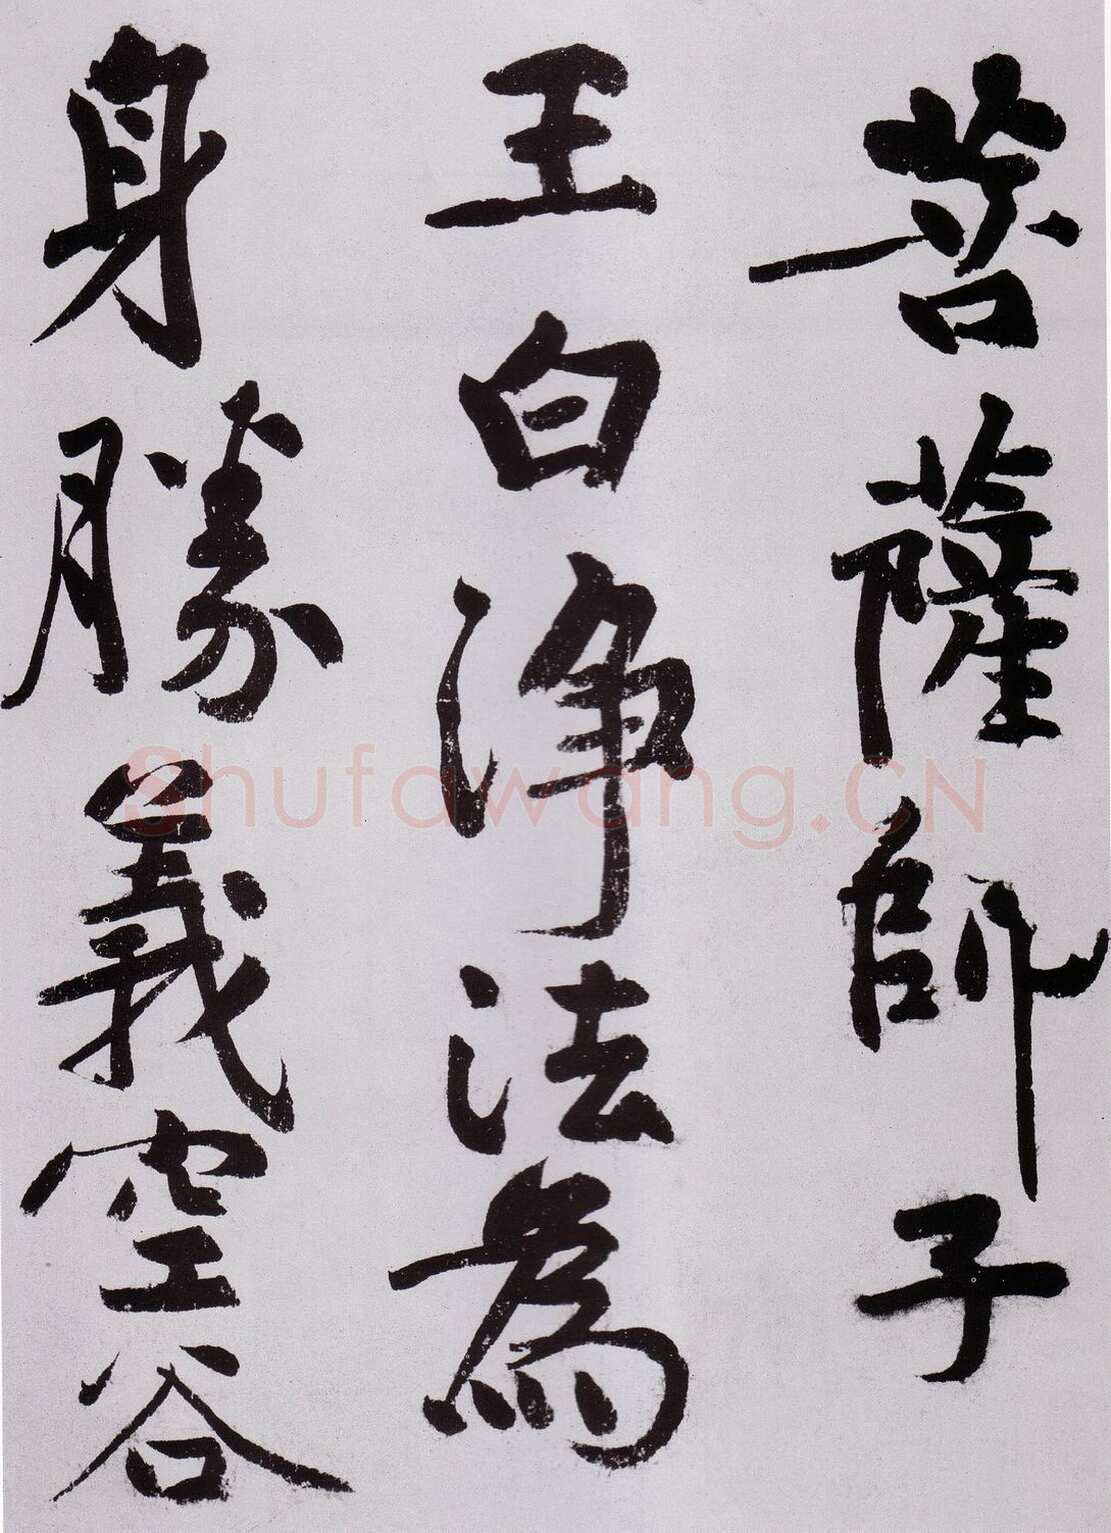 菩薩師子
王白淨法為
身勝義空谷
Shufawang.CN